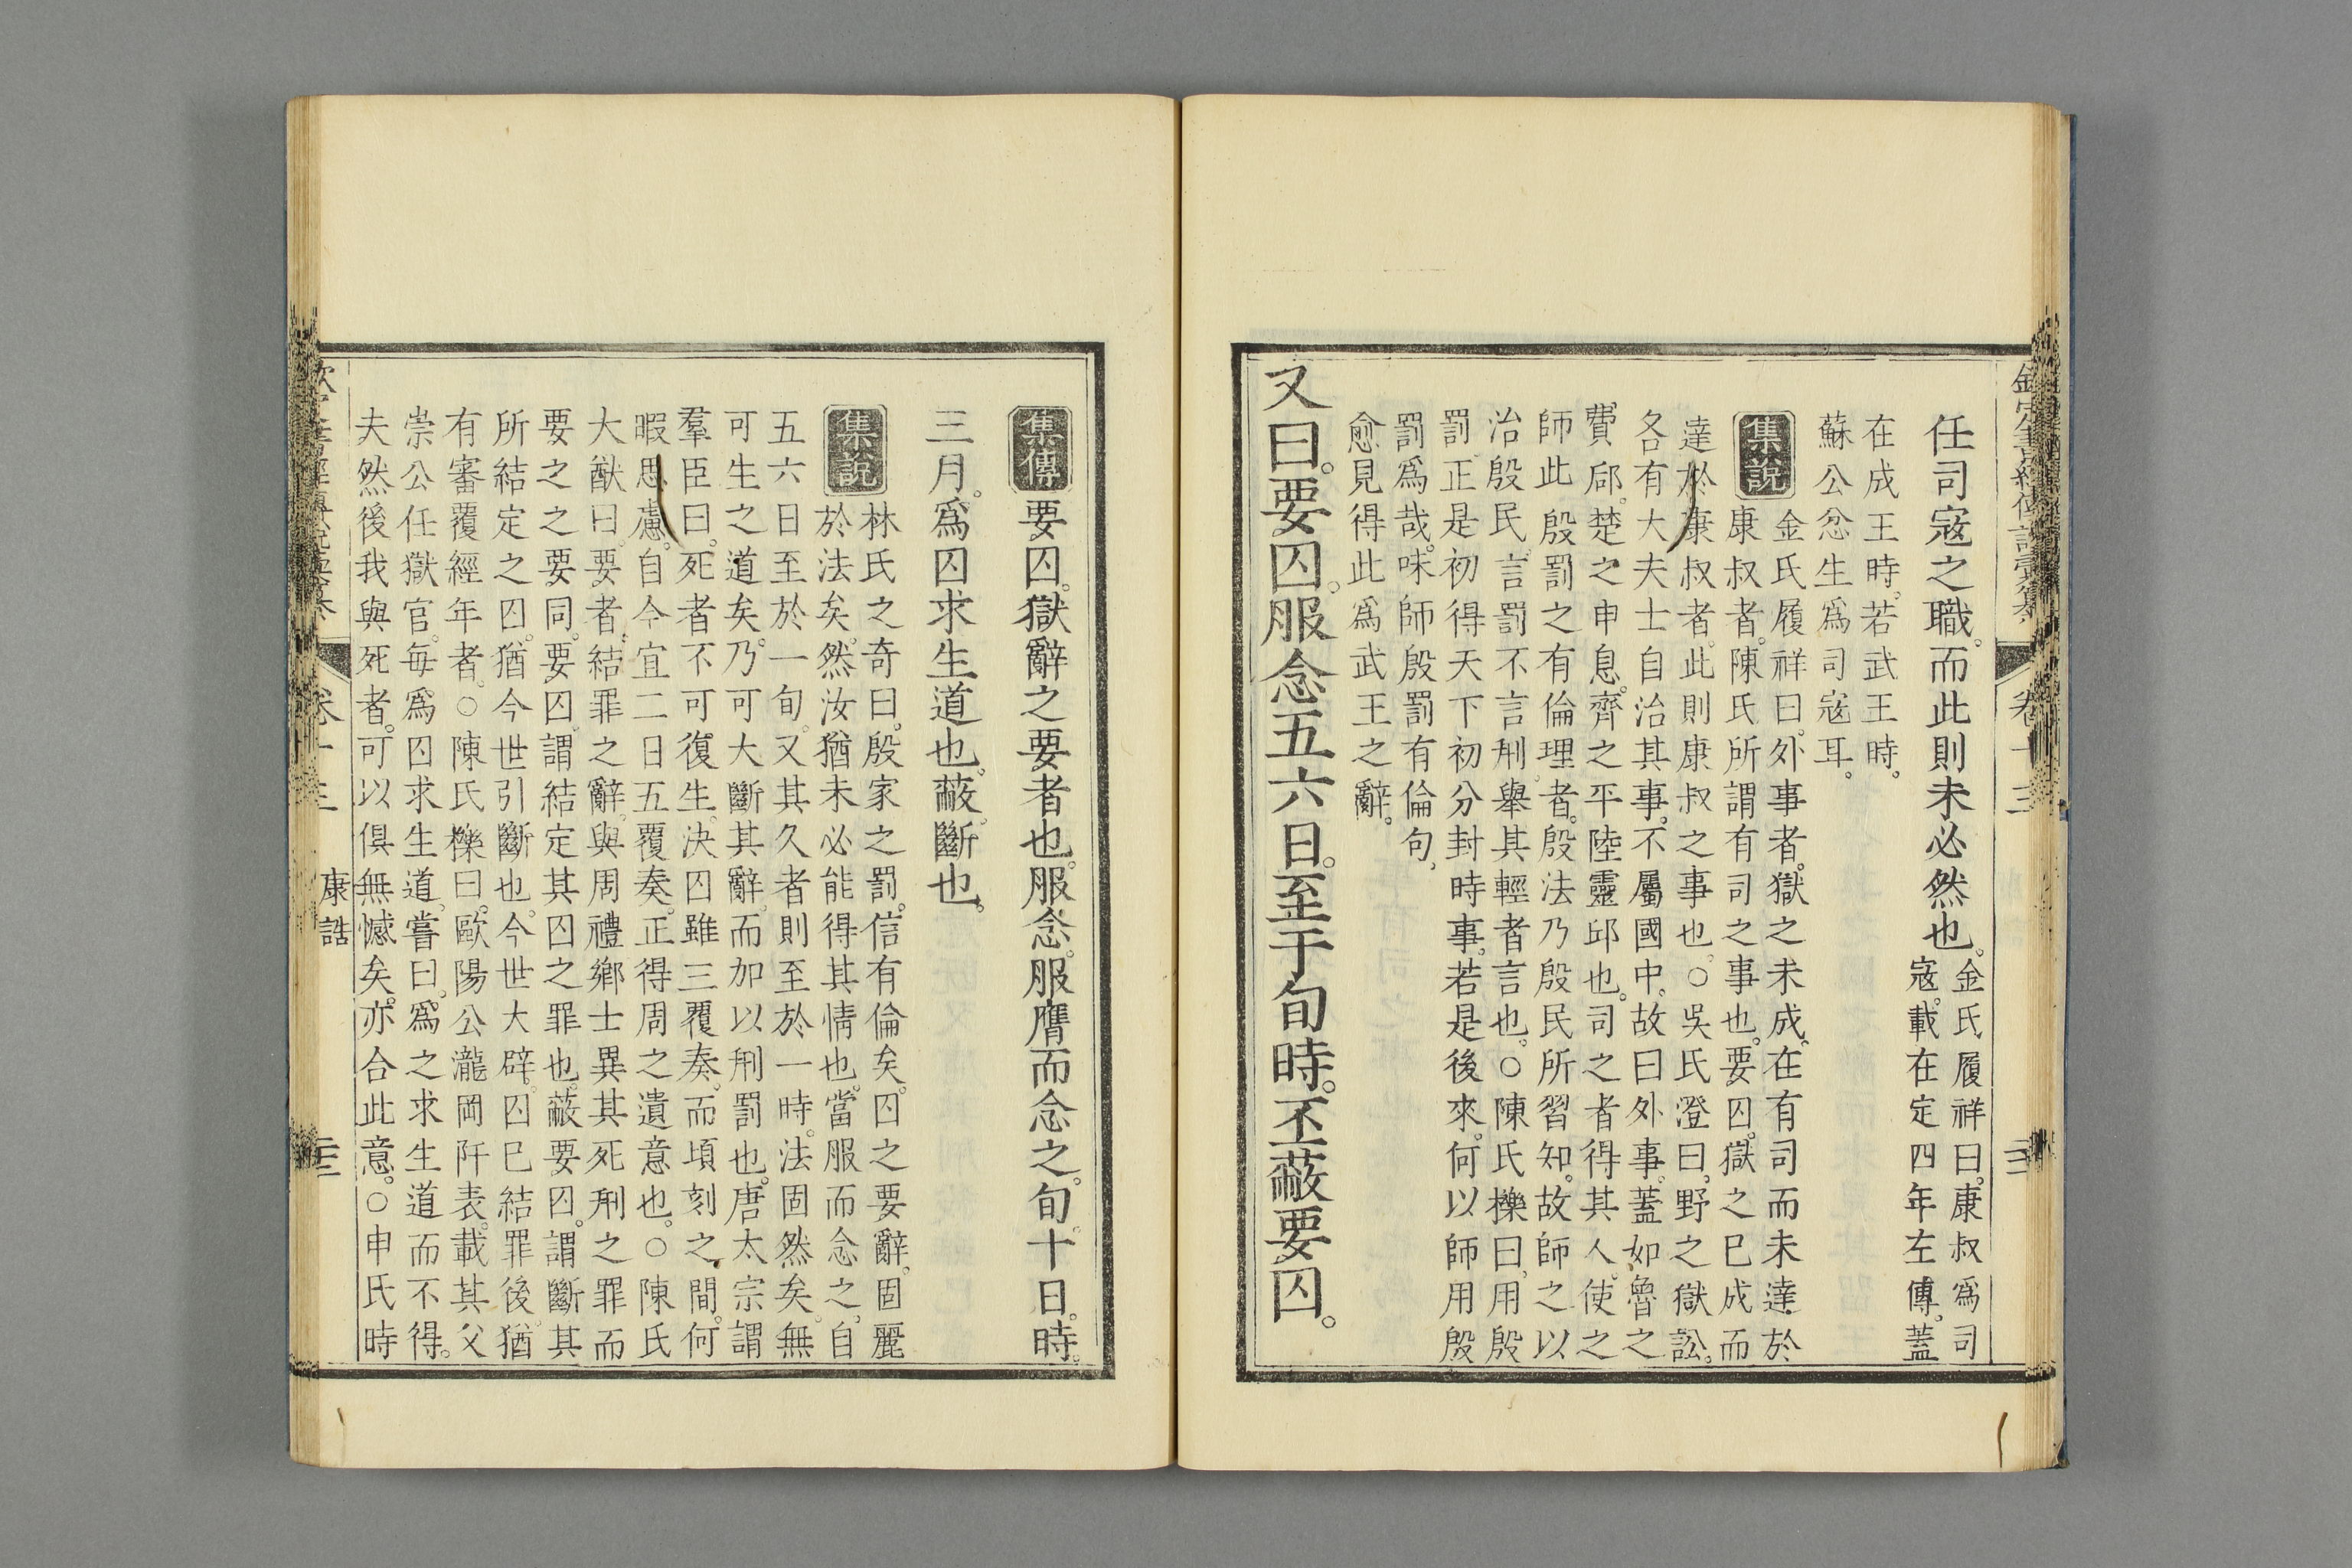 任司寇之職。而此則未必然也。金氏履祥曰。康叔爲司
寇。載在定四年左傳。蓋
在成王時。若武王時。
蘇公忿生爲司寇耳。
集說
金氏履祥曰。外事者。獄之未成。在有司而未達於
康叔者。陳氏所謂有司之事也。要囚。獄之已成而
達於康叔者。此則康叔之事也。○吳氏澄曰。野之獄訟。
各有大夫士自治其事。不屬國中。故曰外事。蓋如魯之
費郈。楚之申息。齊之平陸靈邱也。司之者得其人。使之
師此殷罰之有倫理者。殷法乃殷民所習知。故師之以
治殷民。言罰不言刑。舉其輕者言也。○陳氏櫟曰。用殷
罰正是初得天下初分封時事。若是後來。何以師用殷
罰爲哉。味師殷罰有倫句、
愈見得此爲武王之辭。
又曰。要囚。服念五六日。至于旬時。丕蔽要囚。
卷十三
集傳
要囚。獄辭之要者也。服念。服膺而念之。旬。十日。時。
三月。爲囚求生道也。蔽。斷也。
集說
林氏之奇曰。殷家之罰。信有倫矣。囚之要辭。固麗
於法矣。然汝猶未必能得其情也。當服而念之。自
五六日至於一旬。又其久者則至於一時。法固然矣。無
可生之道矣。乃可大斷其辭。而加以刑罰也。唐太宗謂
羣臣曰。死者不可復生。決囚雖三覆奏。而頃刻之間。何
暇思慮。自今宜二日五覆奏。正得周之遺意也。○陳氏
大猷曰。要者。結罪之辭。與周禮鄉士異其死刑之罪而
要之之要同。要囚。謂結定其囚之罪也。蔽要囚。謂斷其
所結定之囚。猶今世引斷也。今世大辟。囚已結罪後。猶
有審覆經年者。○陳氏櫟曰。歐陽公瀧岡阡表。載其父
崇公任獄官。每爲囚求生道。嘗曰。爲之求生道而不得。
夫然後我與死者。可以俱無憾矣。亦合此意。○申氏時
康誥